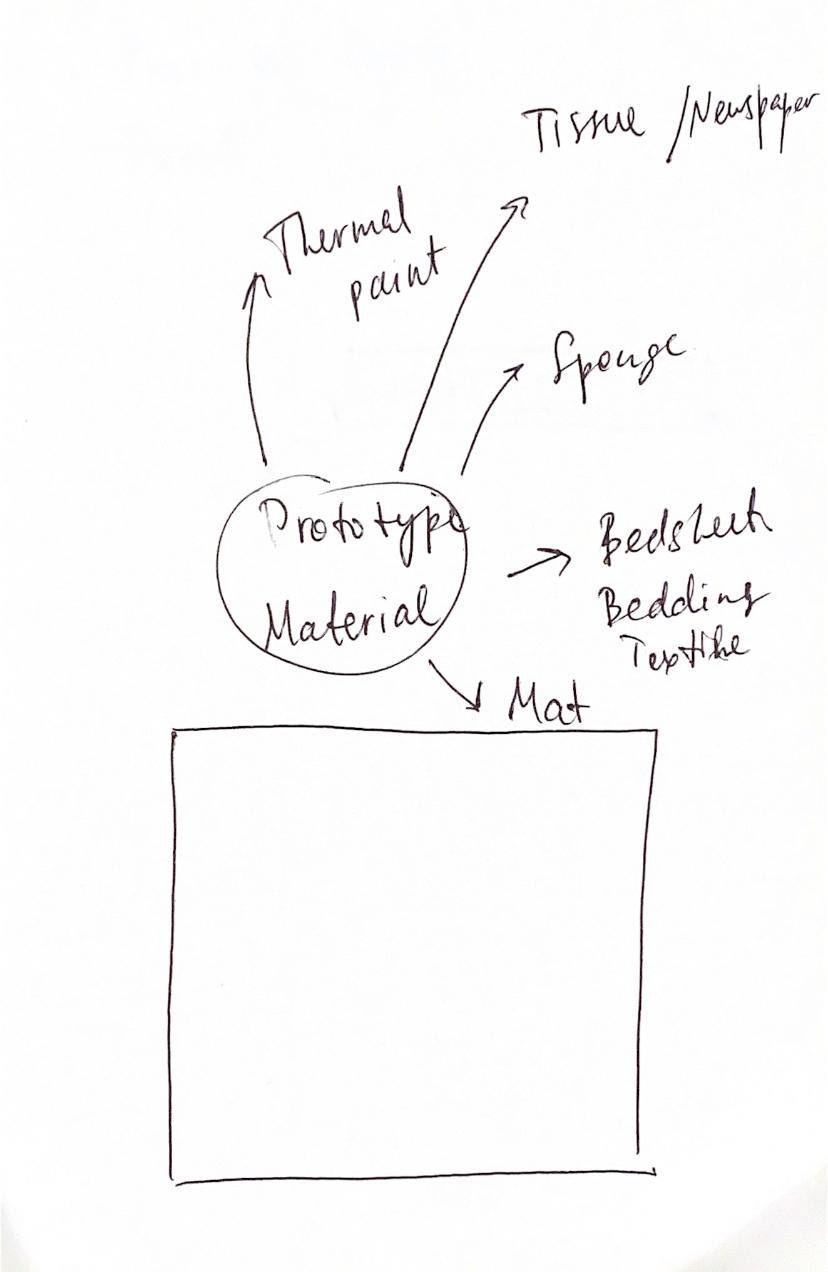 Tissue /Newspaper
Thermal
paint
Sponge
Prototype
Material
Bedsheet
Bedding
Textile
Mat